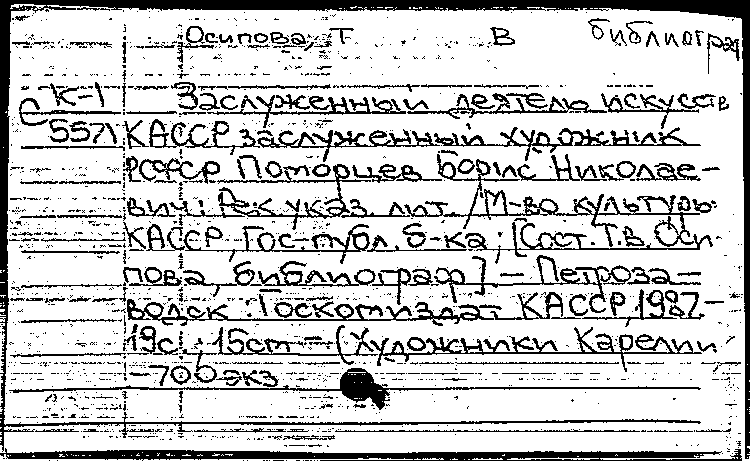 Осипова, Т В библиограф
К-1 Заслуженный деятель искусств
С 5571 КАССР, заслуженный художник
РСФСР Поморцев Борис Николае-
вич: Рек. указ. лит. / М-во культуры
КАССР, Гос. публ. б-ка; [Сост. Т.В. Оси-
пова, библиограф]. - Петроза-
водск: Госкомиздат КАССР, 1987. -
19с.; 15cm - (Художники Карелии
- 700 экз.